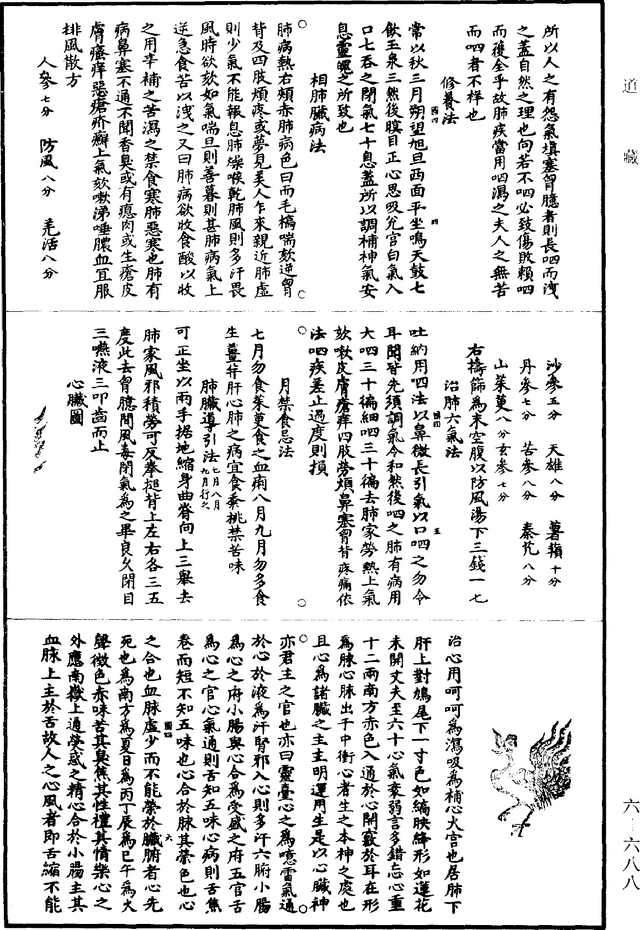 道藏
所以人之有怨氣填塞胷臆者則長呬而洩
之蓋自然之理也向若不呬必致傷敗賴呬
而獲全乎故肺疾當用呬瀉之夫人之無苦
而呬者不祥也
修養法
常以秋三月朔望旭旦西面平坐鳴天鼓七
飲玉泉三然後瞑目正心思吸兊宮白氣入
口七吞之閉氣七十息蓋所以調補神氣安
息靈魄之所致也
相肺臟病法
肺病熱右頰赤肺病色白而毛槁喘欬逆胷
背及四肢煩疼或夢見美人乍來親近肺虛
則少氣不能報息肺燥喉乾肺風則多汗畏
風時欲欬如氣喘旦則善暮則甚肺病氣上
逆急食苦以洩之又曰肺病欲收食酸以收
之用辛補之苦瀉之禁食寒肺惡寒也肺有
病鼻塞不通不聞香臭或有瘜肉或生瘡皮
膚瘙痒惡瘡疥癬上氣欬嗽涕唾膿血宜服
排風散方
人參七分 防風八分 羌活八分
沙參五分 天雄八分 薯蕷十分
丹參七分 苦參八分 秦艽八分
山茱萸八分 玄參七分
右擣篩為末空腹以防風湯下三錢一七
治肺六氣法
吐納用呬法以鼻微長引氣以口呬之勿令
耳聞皆先須調氣令和然後呬之肺有病用
大呬三十徧細呬三十徧去肺家勞熱上氣
欬嗽皮膚瘡痒四肢勞煩鼻塞胷背疼痛依
法呬疾差止過度則損
月禁食忌法
七月勿食茱萸食之血痢八月九月勿多食
生薑并肝心肺之病宜食黍桃禁苦味
肺臟導引法七月八月九月行之
可正坐以兩手據地縮身曲脊向上三舉去
肺家風邪積勞可反拳搥背上左右各三五
度此去胷臆間風毒閉氣為之畢良久閉目
三嚥液三叩齒而止
心臟圖
治心用呵呵為瀉吸為補心火宮也居肺下
肝上對鳩尾下一寸色如縞映絳形如蓮花
未開丈夫至六十心氣衰弱言多錯忘心重
十二兩南方赤色入通於心開竅於耳在形
為脉心脉出于中衝心者生之本神之處也
且心為諸臟之主主明運用生是以心臟神
亦君主之官也亦曰靈臺心之為噫雷氣通
於心於液為汗腎邪入心則多汗六腑小腸
為心之府小腸與心合為受盛之府五官舌
為心之官心氣通則舌知五味心病則舌焦
卷而短不知五味也心合於脉其榮色也心
之合也血脉虛少而不能榮於臟腑者心先
死也為南方為夏日為丙丁辰為巳午為火
聲徵色赤味苦其臭焦其性禮其情樂心之
外應南嶽上通熒惑之精心合於小腸主其
血脉上主於舌故人之心風者即舌縮不能
六—六八八